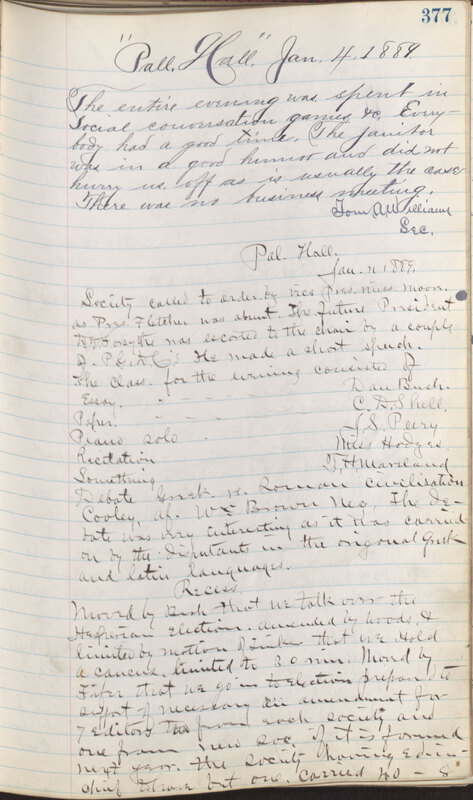 377
"Pall. Hall." Jan. 4, 1889.
The entire evening was spent in
Social conversation games &c. Every-
body had a good time. The janitor
was in a good humor and did not
hurry us off as is usually the case
There was no business meeting.
Tom A. Williams
Sec.
Pal. Hall.
Jan. 11 1889.
Society called to order by vice Pres. Miss Moore.
as Pres. Fletcher was absent. The future President
Forsythe was escorted to the chair by a couple
He made a short speech.
The class for the evening consisted of
Essay. Dan Bush.
Paper. C. D. Shell.
Piano solo J. S. Peery
Recitation Miss Hodges
Something Marsland
Debate Greek vs. Roman civilization
Cooley, af. Wm Brown Neg. The de-
bate was very interesting as it was carried
on by the disputants in the origonal Greek
and latin languages.
Recess.
Moved by Bush that we talk over the
Hesperian election. amended by Woods, &
limited by motion of that we hold
a caucus, limited to 30 min. Moved by
Fifer that we go into election prepared to
suport if necessary an amendment for
7 editors from each society and
one from new soc. if it is formed
next year. the society having editor in
chief to have but one. Carried 40 - 8